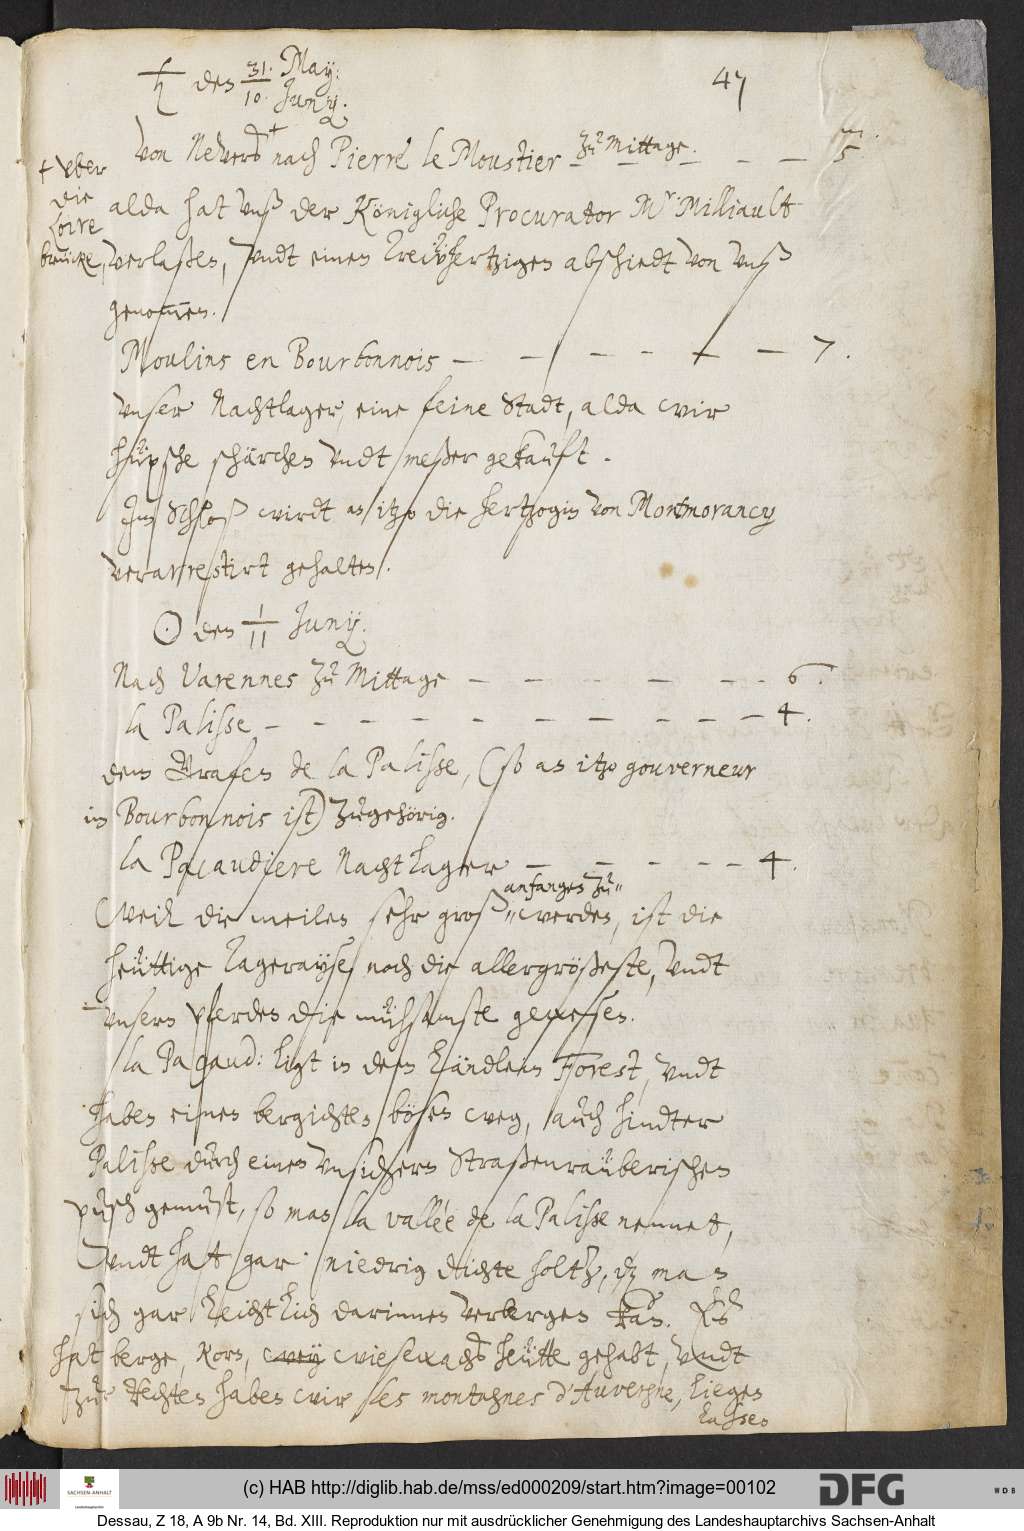 ♄ den 31. May:
10. Juny.
47
m.
von Nevers + nach Pierre le Moustier zu Mittage. – – – – 5
+ uber
die
Loire
breücke,
alda hat unß der Königliche Procurator Mr. Milliault
verlaßen, undt einen treühertzigen abschiedt von unß
genommen.
Moulins en Bourbonnois – – – – – – 7.
unser Nachtlager, eine feine Stadt, alda wir
hüpsche schärchen undt meßer gekauft.
Im Schloß wirdt an itzo die hertzogin von Montmorancy
verarrestirt gehalten.
☉ den 1/11 Juny.
Nach Varennes zu Mittage – – – – – – 6.
la Palisse – – – – – – – – – – 4.
dem Grafen de la Palisse, (so an itzo gouverneur
in Bourbonnois ist) zugehörig.
la Pacaudiere Nacht Lager – – – – – 4.
anfangen zu"
Weil die meilen sehr groß "werden, ist die
heüttige Tageraÿse, noch die allergrößeste, undt
unsern pferden die mühsamste gewessen.
la Pacaud: ligt in dem Ländlein Forest, undt
haben einen bergichten bösen weg, auch hindter
Palisse durch einen unsichern Straßenräüberischen
pusch gemust, so man la vallée de la Palisse nennet,
undt hatt gar niedrig dichte holtz, dz man
sich gar leichtlich darinnen verbergen kan. Es
hat berge, Korn, wey wiesewachß heütte gehabt, undt
zur Rechten haben wir les montagnes d'Auvergne, liegen
laßen
(c) HAB http://diglib.hab.de/mss/ed000209/start.htm?image=00102
SACHSEN-ANHALT
Landeshauptarchiv
DFG
WDB
Dessau, Z 18, A 9b Nr. 14, Bd. XIII. Reproduktion nur mit ausdrücklicher Genehmigung des Landeshauptarchivs Sachsen-Anhalt